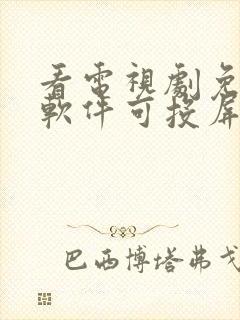 看電視劇免
軟件可投屏
巴西博塔弗戈